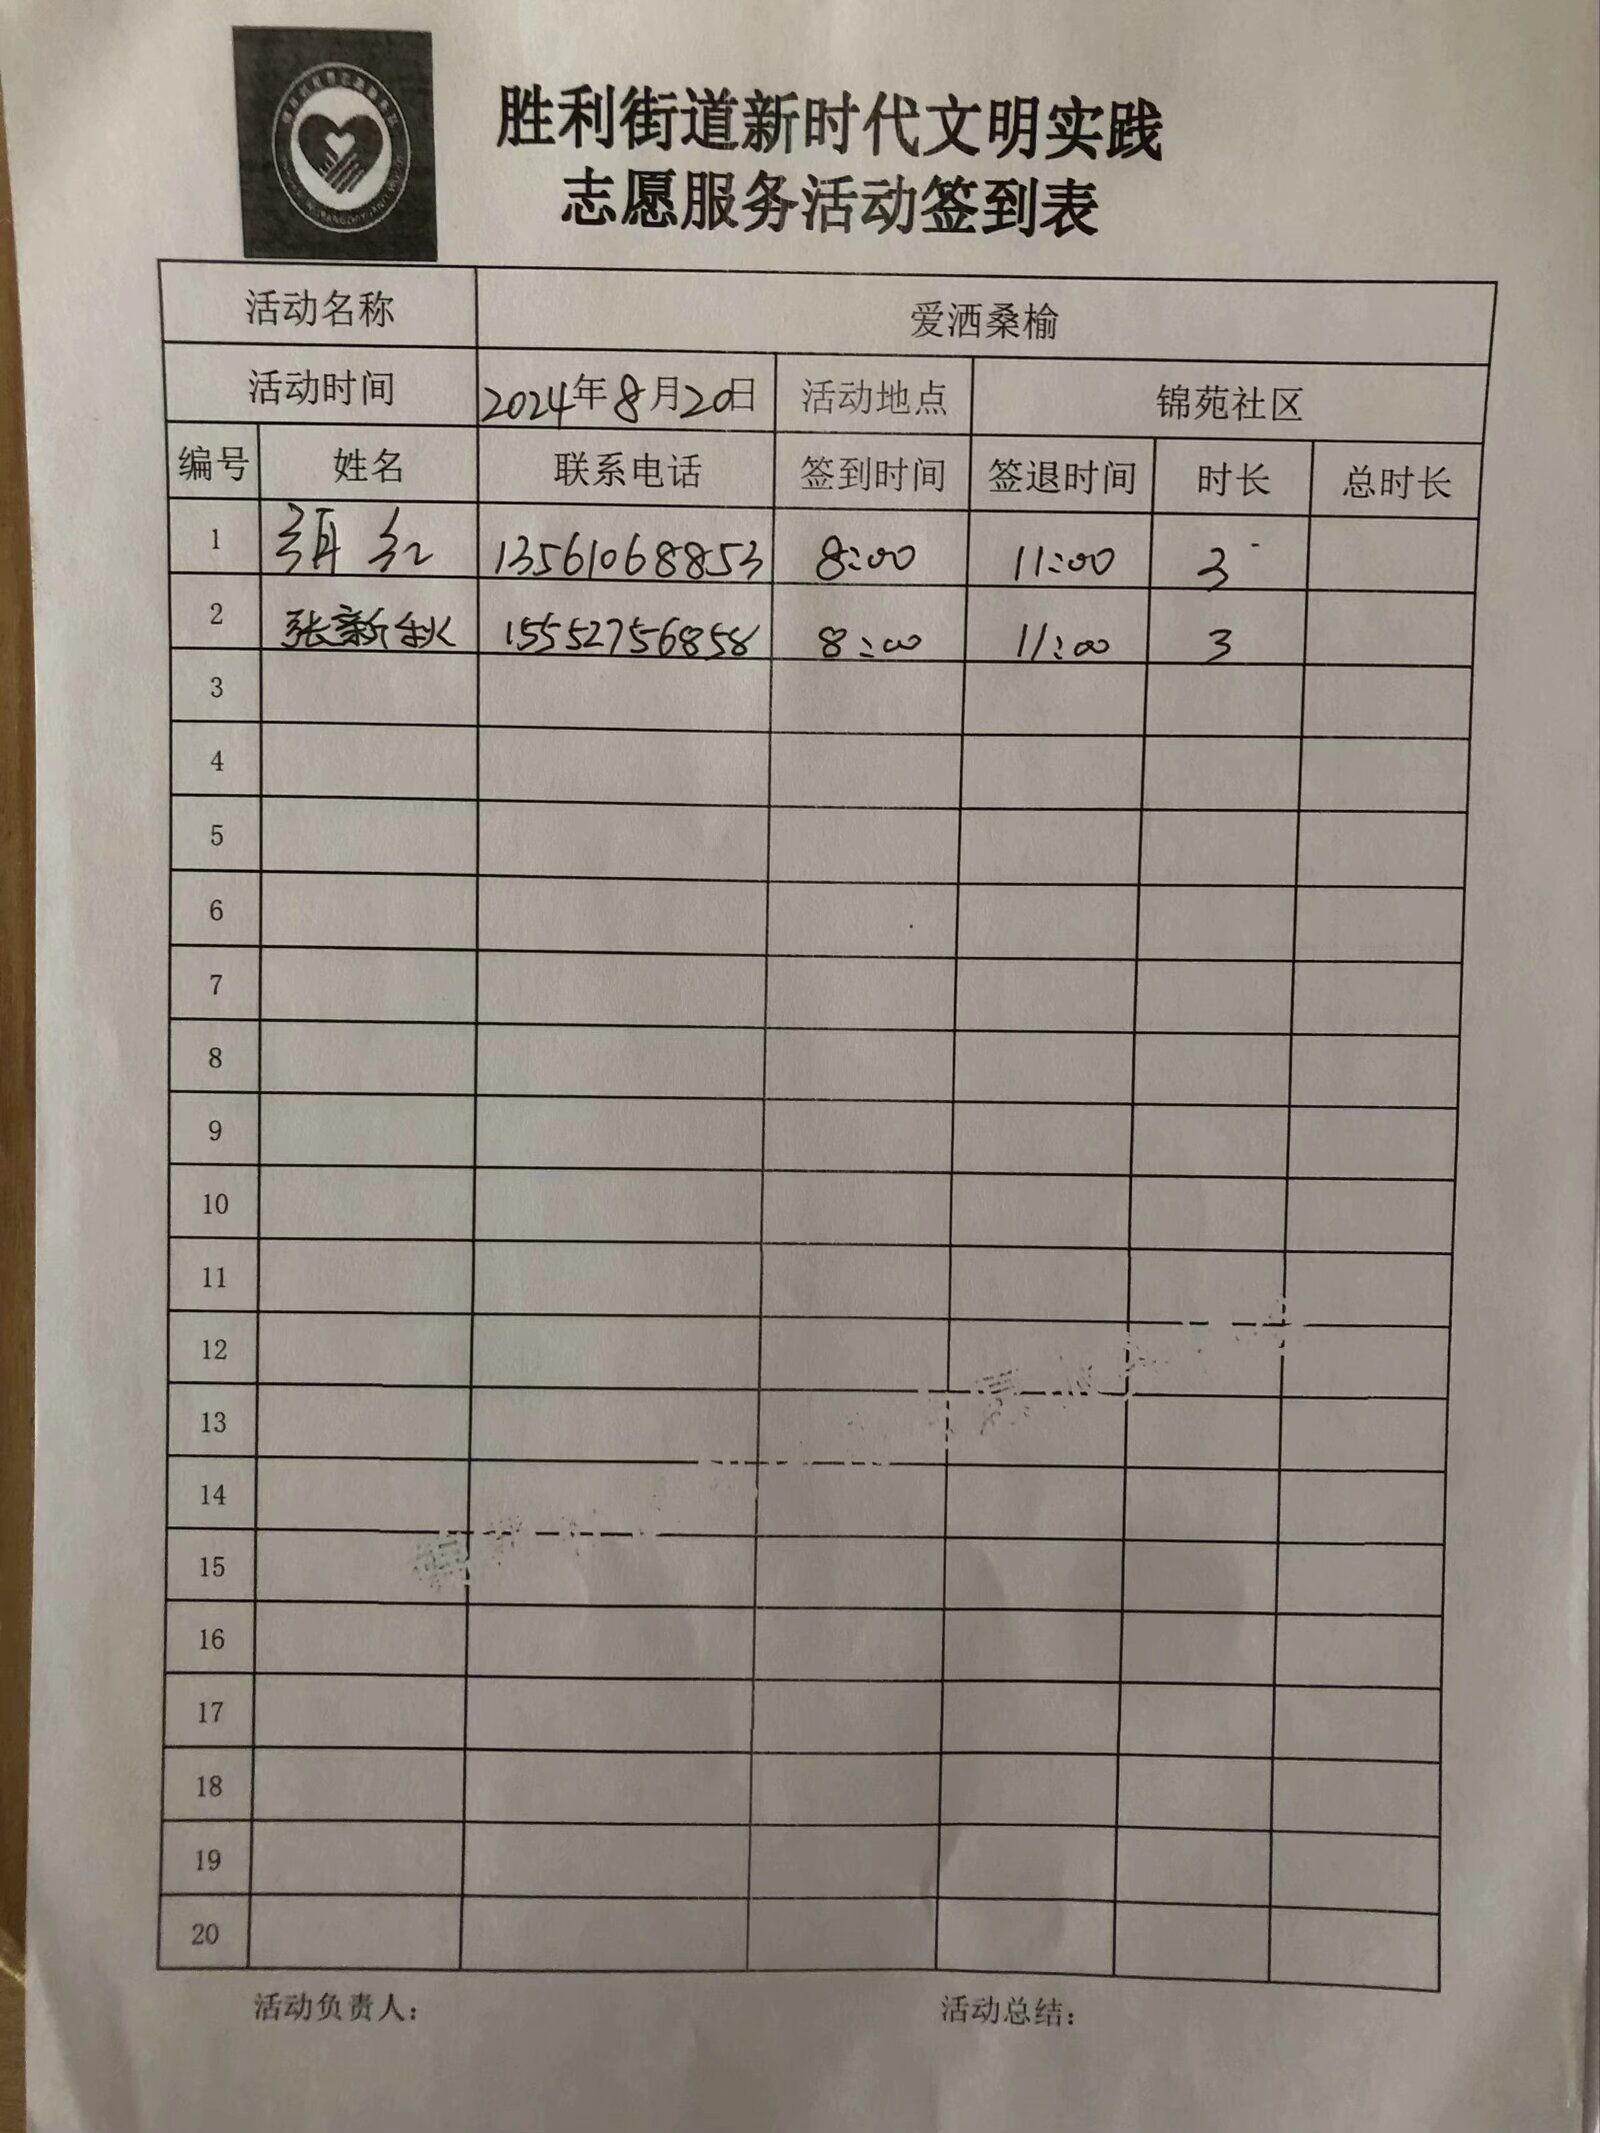 胜利街道新时代文明实践
志愿服务活动签到表
活动名称 爱洒桑榆
活动时间 2024年8月20日 活动地点 锦苑社区
编号 姓名 联系电话 签到时间 签退时间 时长 总时长
1 红 13561068853 8:00 11:00 3
2 张新秋 15552756858 8:00 11:00 3
3
4
5
6
7
8
9
10
11
12
13
14
15
16
17
18
19
20
活动负责人： 活动总结：